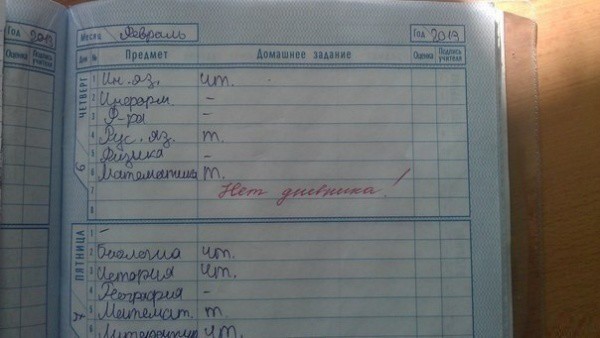 Год 2013
Месяц Февраль Год 2013
Оценка Подпись учителя
Дни № Предмет Домашнее задание Оценка Подпись учителя
ЧЕТВЕРГ
6
1 Ин. яз. чт.
2 Информ. –
3 Ф-ра –
4 Рус. яз. т.
5 Физика –
6 Математика т.
7 Нет дневника!
8
ПЯТНИЦА
7
1 –
2 Биология чт.
3 История чт.
4 География –
5 Математ. т.
6 Литература чт.